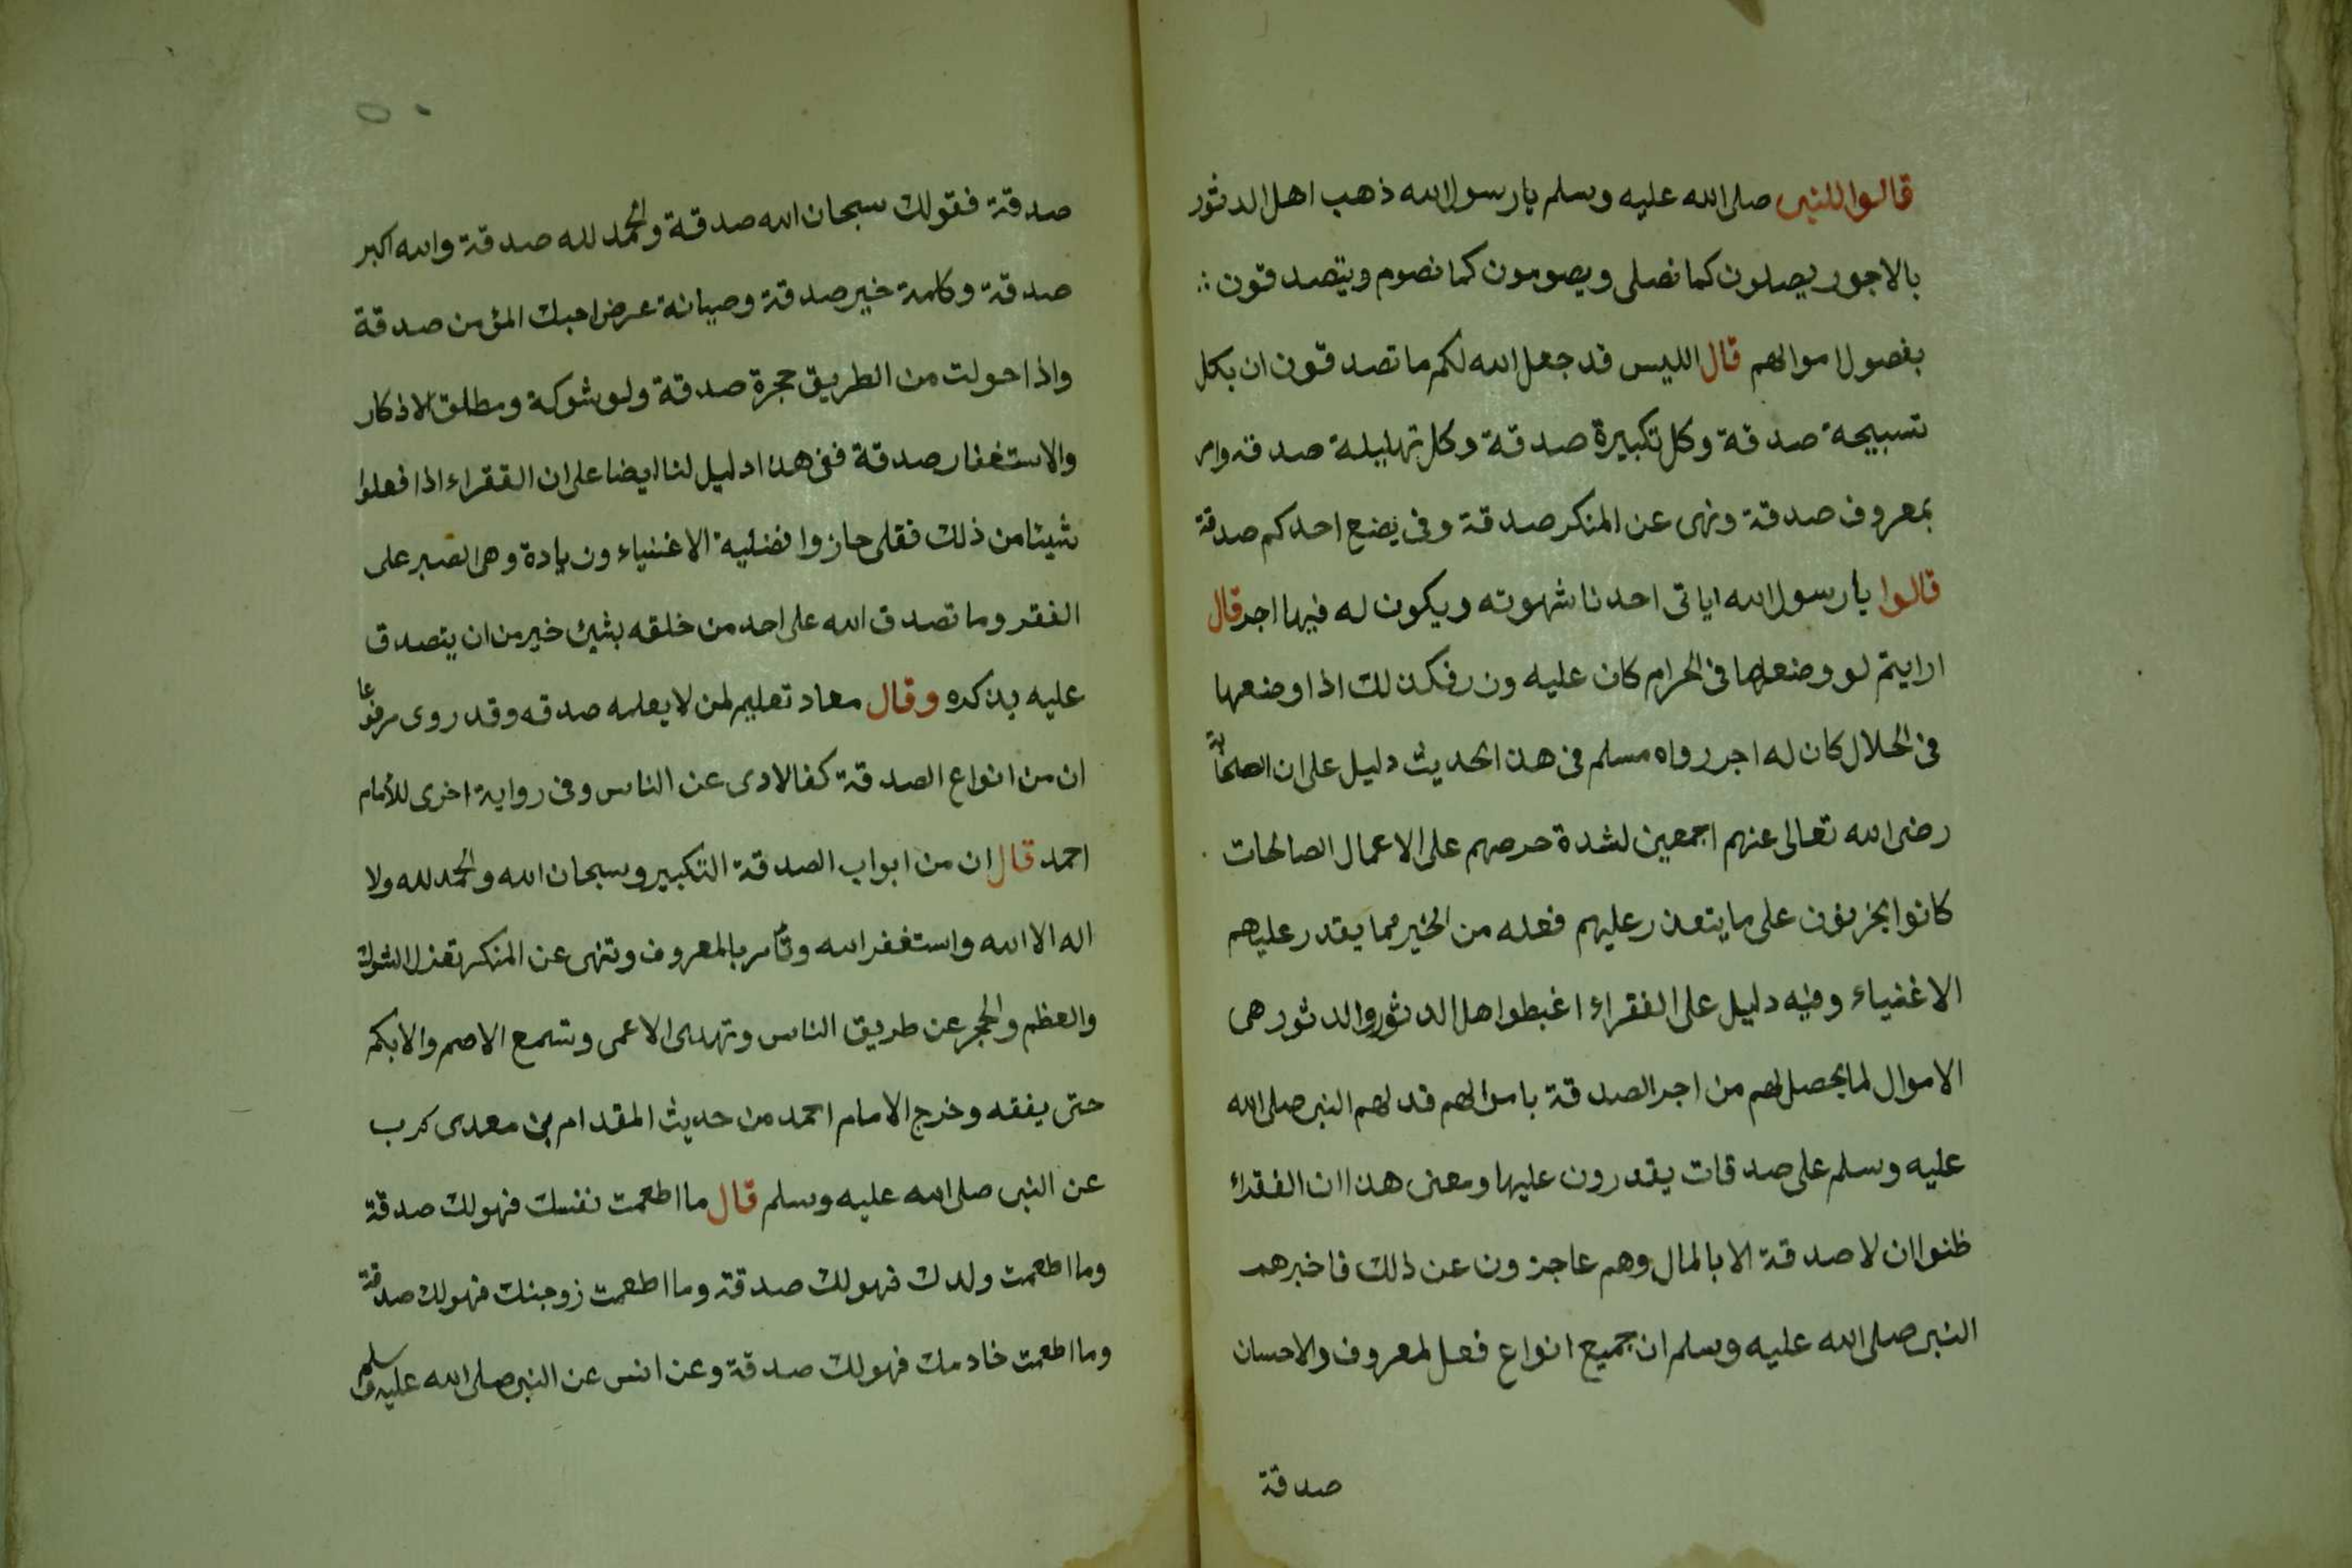 قالوا للنبى صلى الله عليه وسلم يا رسول الله ذهب اهل الدثور
بالاجور يصلون كما نصلى ويصومون كما نصوم ويتصدقون
بفضول اموالهم قال الليس قد جعل الله لكم ما تصدقون ان بكل
تسبيحة صدقة وكل تكبيرة صدقة وكل تهليلة صدقة وامر
بمعروف صدقة ونهى عن المنكر صدقة وفى بضع احدكم صدقة
قالوا يا رسول الله اياتى احدنا شهوته ويكون له فيها اجر قال
ارايتم لو وضعها فى الحرام كان عليه وزر فكذلك اذا وضعها
فى الحلال كان له اجر رواه مسلم فى هذا الحديث دليل على ان الصحابة
رضى الله تعالى عنهم اجمعين لشدة حرصهم على الاعمال الصالحات
كانوا يحزنون على ما يتعذر عليهم فعله من الخير مما يقدر عليهم
الاغنياء وفيه دليل على الفقراء اغبطوا اهل الدثور والدثور هى
الاموال لما يحصل لهم من اجر الصدقة باموالهم فد لهم النبى صلى الله
عليه وسلم على صدقات يقدرون عليها ومعنى هذا ان الفقراء
ظنوا ان لا صدقة الا بالمال وهم عاجزون عن ذلك فاخبرهم
النبى صلى الله عليه وسلم ان جميع انواع فعل لمعروف والاحسان
صدقة
٥٠
صدقة فقولك سبحان الله صدقة والحمد لله صدقة والله اكبر
صدقة وكلمة خير صدقة وصيانة عرض احبك المؤمن صدقة
واذا حولت من الطريق حجرة صدقة ولو شوكة ومطلق الاذكار
والاستغفار صدقة ففى هذا دليل لنا ايضا على ان الفقراء اذا فعلوا
شيئا من ذلك فقلى حازوا فضلية الاغنياء وزيادة وهى الصبر على
الفقر وما تصدق الله على احد من خلقه بشئ خير من ان يتصدق
عليه بذكره وقال معاد تعليم لمن لا يعلمه صدقه وقد روى مرفوعا
ان من انواع الصدقة كف الادى عن الناس وفى رواية اخرى للأمام
احمد قال ان من ابواب الصدقة التكبير وسبحان الله والحمد لله ولا
اله الا الله واستغفر الله وتأمر بالمعروف وتنهى عن المنكر تعذل الشوك
والعظم والحجر عن طريق الناس وتهدى الاعمى وتسمع الاصم والابكم
حتى يفقه وخرج الامام احمد من حديث المقدام بن معدى كرب
عن النبى صلى الله عليه وسلم قال ما اطعمت نفسك فهو لك صدقة
وما اطعمت ولدك فهو لك صدقة وما اطعمت زوجتك فهو لك صدقة
وما اطعمت خادمك فهو لك صدقة وعن انس عن النبى صلى الله عليه وسلم